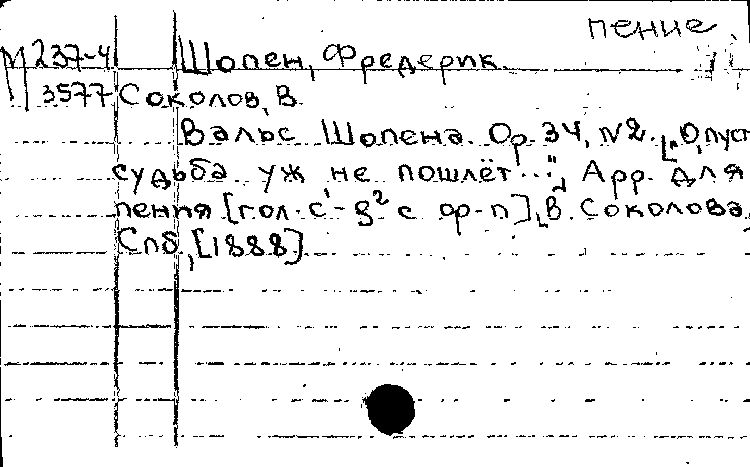 пение
М 237-4 Шопен, Фредерик.
3577 Соколов, В.
Вальс Шопена. Op. 34, N2. ["О, пусть
судьба уж не пошлёт..."], Арр. для
пения [гол. c¹-g² с ф-п], В. Соколова,
Спб, [1888].